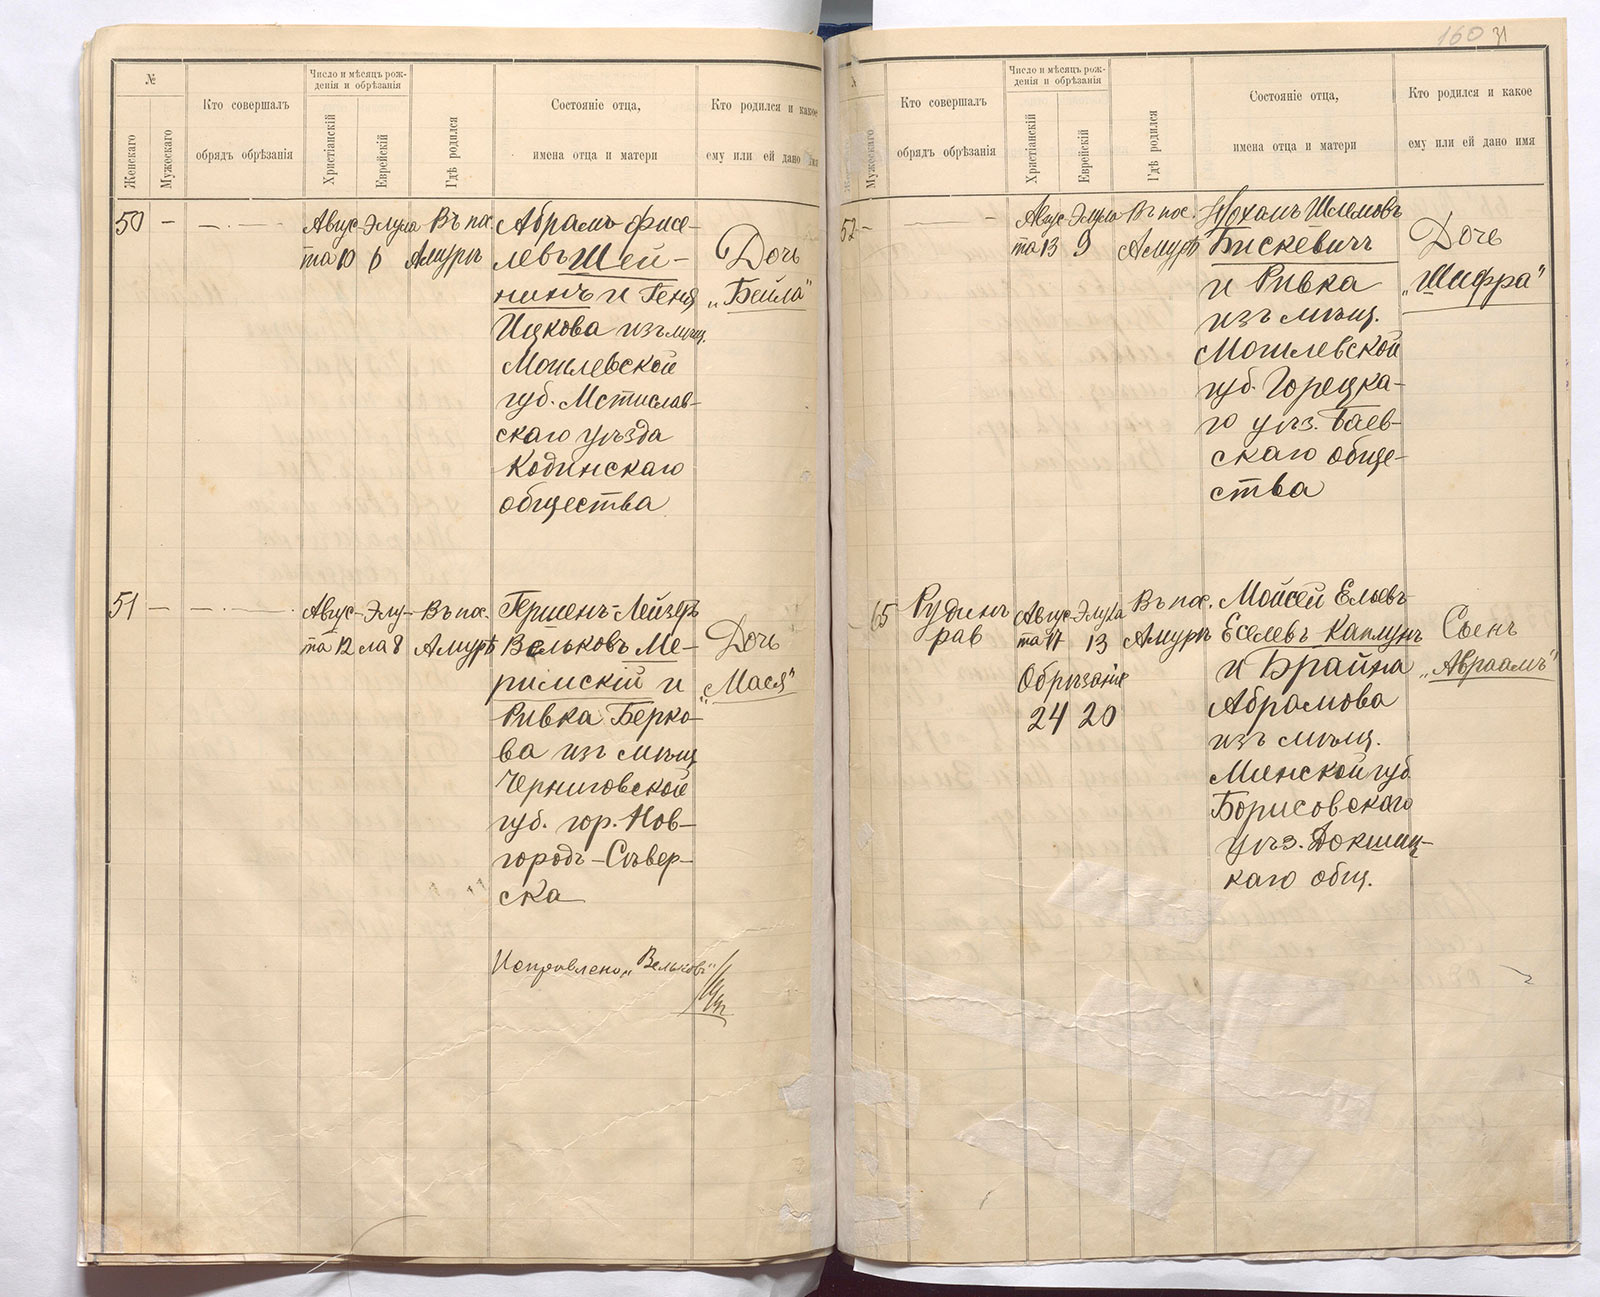 №
Женскаго
Мужескаго
Кто совершалъ
обрядъ обрѣзанія
Число и мѣсяцъ рож-
денія и обрѣзанія
Христіанскій
Еврейскій
Гдѣ родился
Состояніе отца,
имена отца и матери
Кто родился и какое
ему или ей дано имя
50
Авгус-
та 10
Элула
6
Въ пос.
Амуръ
Абрамъ Фисе-
левъ Шей-
нинъ и Геня
Ицкова изъ мѣщ.
Могилевской
губ. Мстислав-
скаго уѣзда
Кодинскаго
общества
Дочь
„Бейла"
51
Авгус-
та 12
Элу-
ла 8
Въ пос.
Амурѣ
Гершенъ-Лейзеръ
Вельковъ Ме-
римскій и
Ривка Берко-
ва изъ мѣщ
Черниговской
губ. гор. Нов-
городъ-Сѣвер-
ска
Дочь
„Мася"
Исправлено „Вельковъ"
160 31
Мужескаго
Кто совершалъ
обрядъ обрѣзанія
Число и мѣсяцъ рож-
денія и обрѣзанія
Христіанскій
Еврейскій
Гдѣ родился
Состояніе отца,
имена отца и матери
Кто родился и какое
ему или ей дано имя
52
Авгус-
та 13
Элула
9
Въ пос.
Амурѣ
Нохамъ Шлемовъ
Бискевичъ
и Ривка
изъ мѣщ.
Могилевской
губ. Горецка-
го уѣз. Баев-
скаго обще-
ства
Дочь
„Шифра"
65
Рудинъ
рав
Авгус-
та 17
Элула
13
Обрѣзаніе
24 20
Въ пос.
Амурѣ
Мойсей Ельевъ
Еселевъ Каплунъ
и Брайна
Абрамова
изъ мѣщ.
Минской губ
Борисовскаго
уѣз. Докшиц-
каго общ.
Сынъ
„Авраамъ"